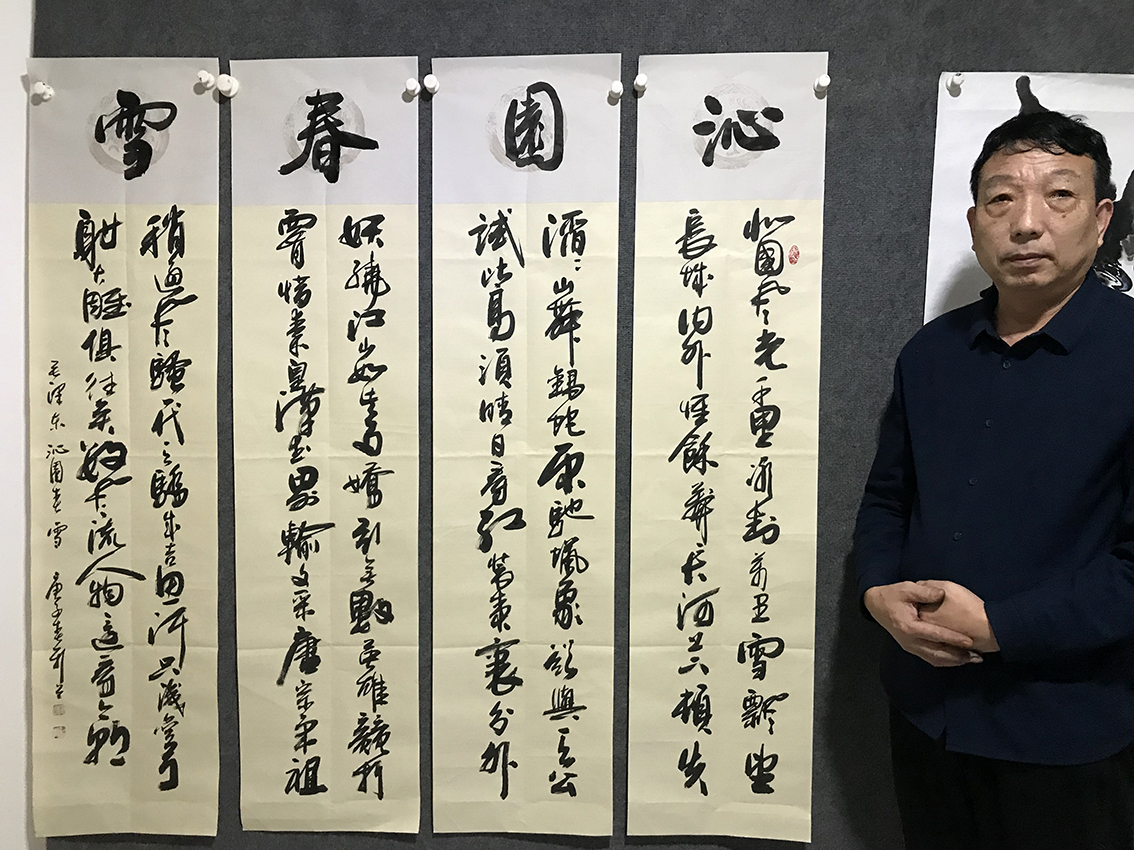 沁
北國風光千里冰封萬里雪飄望
長城内外惟餘莽莽大河上下頓失
園
滔滔山舞銀蛇原馳蠟象欲與天公
試比高須晴日看紅裝素裹分外
春
妖嬈江山如此多嬌引無數英雄競折
腰惜秦皇漢武略輸文采唐宗宋祖
雪
稍遜風騷一代天驕成吉思汗只識彎弓
射大雕俱往矣數風流人物還看今朝
毛澤东沁園春雪 庚子春